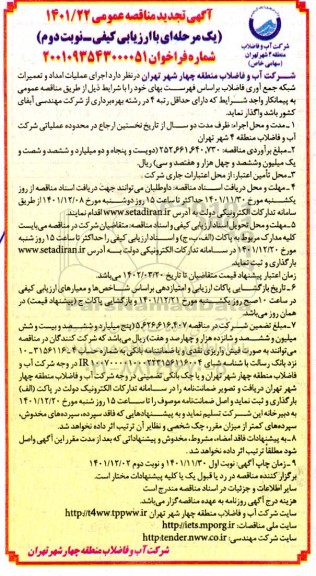 آگهی تجدید مناقصه عمومی ۱۴۰۱/۲۲
(یک مرحله‌ای با ارزیابی کیفی – نوبت دوم)
شماره فراخوان ۲۰۰۱۰۹۳۵۴۳۰۰۰۰۵۱
شرکت آب و فاضلاب
منطقه ۴ شهر تهران
(سهامی خاص)
شرکت آب و فاضلاب منطقه چهار شهر تهران در نظر دارد اجرای عملیات امداد و تعمیرات
شبکه جمع آوری فاضلاب براساس فهرست بهای خود را با شرایط ذیل از طریق مناقصه عمومی
به پیمانکار واجد شرایط که دارای حداقل رتبه ۴ در رشته بهره‌برداری از شرکت مهندسی آبفای
کشور باشد واگذار نماید.
۱- مدت و محل اجرا: ظرف مدت دو سال از تاریخ نخستین ارجاع در محدوده عملیاتی شرکت
آب و فاضلاب منطقه ۴ شهر تهران
۲- مبلغ برآوردی مناقصه: ۲۵۲,۶۶۱,۶۴۰,۷۳۰ (دویست و پنجاه و دو میلیارد و ششصد و شصت و
یک میلیون و ششصد و چهل هزار و هفتصد و سی) ریال.
۳- محل تأمین اعتبار: از محل اعتبارات جاری شرکت.
۴- مهلت و محل دریافت اسناد مناقصه: داوطلبان می‌توانند جهت دریافت اسناد مناقصه از روز
یکشنبه مورخ ۱۴۰۱/۱۱/۳۰ حداکثر تا ساعت ۱۵ روز دوشنبه مورخ ۱۴۰۱/۱۲/۰۸ از طریق
سامانه تدارکات الکترونیکی دولت به آدرس www.setadiran.ir اقدام نمایند.
۵- مهلت و محل تحویل اسناد ارزیابی کیفی و اسناد مناقصه: متقاضیان شرکت در مناقصه می‌بایست
کلیه مدارک مربوط به پاکات (الف، ب، ج) و اسناد ارزیابی کیفی را حداکثر تا ساعت ۱۵ روز شنبه
مورخ ۱۴۰۱/۱۲/۲۰ در سامانه تدارکات الکترونیکی دولت به آدرس www.setadiran.ir
بارگذاری و ثبت نماید.
زمان اعتبار پیشنهاد قیمت متقاضیان تا تاریخ ۱۴۰۲/۰۳/۲۰ می‌باشد.
۶- تاریخ بازگشایی پاکات ارزیابی و امتیازدهی براساس شاخص‌ها و معیارهای ارزیابی کیفی
در ساعت ۱۰ صبح روز یکشنبه مورخ ۱۴۰۱/۱۲/۲۱ و بازگشایی پاکات ج (پیشنهاد قیمت) در
همان روز می‌باشد.
۷- مبلغ تضمین شرکت در مناقصه ۵,۶۲۶,۶۱۶,۴۰۷ (پنج میلیارد و ششصد و بیست و شش
میلیون و ششصد و شانزده هزار و چهارصد و هفت) ریال می‌باشد که شرکت کنندگان در مناقصه
می‌توانند به صورت فیش واریزی نقدی و یا ضمانتنامه بانکی
نزد بانک رسالت با شناسه شبای
فاضلاب منطقه چهار شهر تهران و یا چک بانکی تضمینی در وجه شرکت آب و فاضلاب منطقه چهار
شهر تهران دریافت و تصویر ضمانتنامه را در سامانه تدارکات الکترونیک دولت در پاکت (الف)
بارگذاری و ثبت نماید و اصل ضمانتنامه موصوف را تا ساعت ۱۵ روز شنبه مورخ ۱۴۰۱/۱۲/۲۰
به دبیرخانه این شرکت تسلیم نماید و به پیشنهادهایی که فاقد سپرده، سپرده‌های مخدوش،
سپرده‌های کمتر از میزان مقرر، چک شخصی و نظایر آن ترتیب اثر داده نخواهد شد.
۸- به پیشنهادات فاقد امضاء، مشروط، مخدوش و پیشنهاداتی که بعد از مدت مقرر این آگهی واصل
شود مطلقاً ترتیب اثر داده نخواهد شد.
۹- زمان چاپ آگهی: نوبت اول ۱۴۰۱/۱۱/۳۰ و نوبت دوم ۱۴۰۱/۱۲/۰۲
برگزار کننده مناقصه در رد یا قبول یک یا کلیه پیشنهادات مختار است.
سایر اطلاعات و جزئیات در اسناد مناقصه مندرج است
هزینه درج آگهی روزنامه به عهده مناقصه‌گزار می‌باشد.
سایت شرکت آب و فاضلاب منطقه چهار شهر تهران http://t4ww.tppww.ir
سایت ملی مناقصات: http://iets.mporg.ir
سایت شرکت مهندسی: http:tender.nww.co.ir
شرکت آب و فاضلاب منطقه چهار شهر تهران